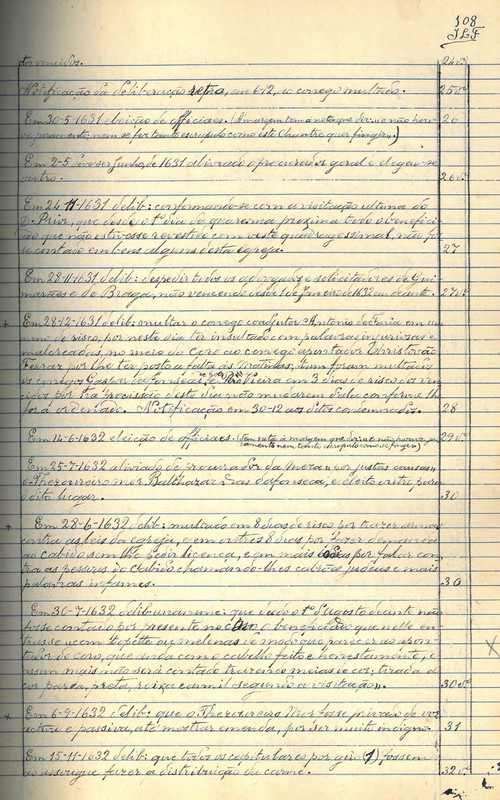 108
dos vencidos. 24 vº
Notificação da deliberação retro, em 6-12, ao conego multado. 25 vº
Em 30-5-1631 eleição de officiaes. (Á margem tem a nota que diz: e não hou- 26
ve juramento; nem se fez tanto escrupulo como este Chantre quer fingir.)
Em 2-5 Junho, de 1631 aliviado o procurador geral e elegeu-se
outro. 26 vº
Em 24-11-1631 delib: conformando-se com a visitação ultima do
D. Prior, que desde o 1º dia da quaresma proxima todo o benefici-
ado que não estivesse revestido com veste quadragessimal, não fos-
se contado em bens alguns desta egreja. 27
Em 28-11-1631 delib: despedir todos os advogados e solicitadores de Gui-
marães e de Braga, não vencendo desde 1 de Janeiro de 1632 em deante. 27 vº
+ Em 28-12-1631 delib: multar o conego coadjutor Antonio de Faria em um
anno de risco, por neste dia ter insultado com palavras injuriosas e
malcreadas, no meio do coro ao conego apontador Christovão
Ferraz por lhe ter posto a falta ás Matinas; e foram multados
os conegos Gaspar da Fonseca e Vieira em 3 dias de risco dos ven-
cidos por na procissão deste dia não mudarem conforme lhe
fora ordenado. Notificação em 30-12 aos ditos condemnados. 28
Em 14-6-1632 eleição de officiaes. (Tem nota á margem que diz: e não houve ju- 29 vº
ramento nem tanto escrupulo como se finge.)
Em 25-7-1632 aliviado de procurador da Meza "por justas causas"
o Thezoureiro mór Balthazar Dias da Fonseca, e eleito outro para
o dito lugar. 30
+ Em 28-6-1632 delib: multado em 8 dias de risco por trazer armas
contra as leis da egreja, e em outros 8 dias por fazer demanda
ao cabido sem lhe pedir licença, e em mais dias por falar con-
tra as pessoas do cabido chamando-lhes cabrões judeus e mais
palavras infames. 30
Em 30-7-1632 delib unanime: que desde o 1º d'agosto deante não
fosse contado por presente no coro o beneficiado que nelle en-
trasse com topete ou melenas de modo que parecer ao apon-
tador do coro, que anda com o cabello feito e honestamente, e
assim mais não será contado trazendo meias de côr, tirada a
côr parda, preta, roixa e carmil segundo a visitação". 30 vº
+ Em 6-9-1632 delib: que o Thezoureiro Mór fosse privado de voz
activa e passiva, até mostrar emenda, por ser muito indigno. 31
Em 15-11-1632 delib: que todos os capitulares por giro (1) fossem
ao assougue fazer a distribuição da carne. 32 vº